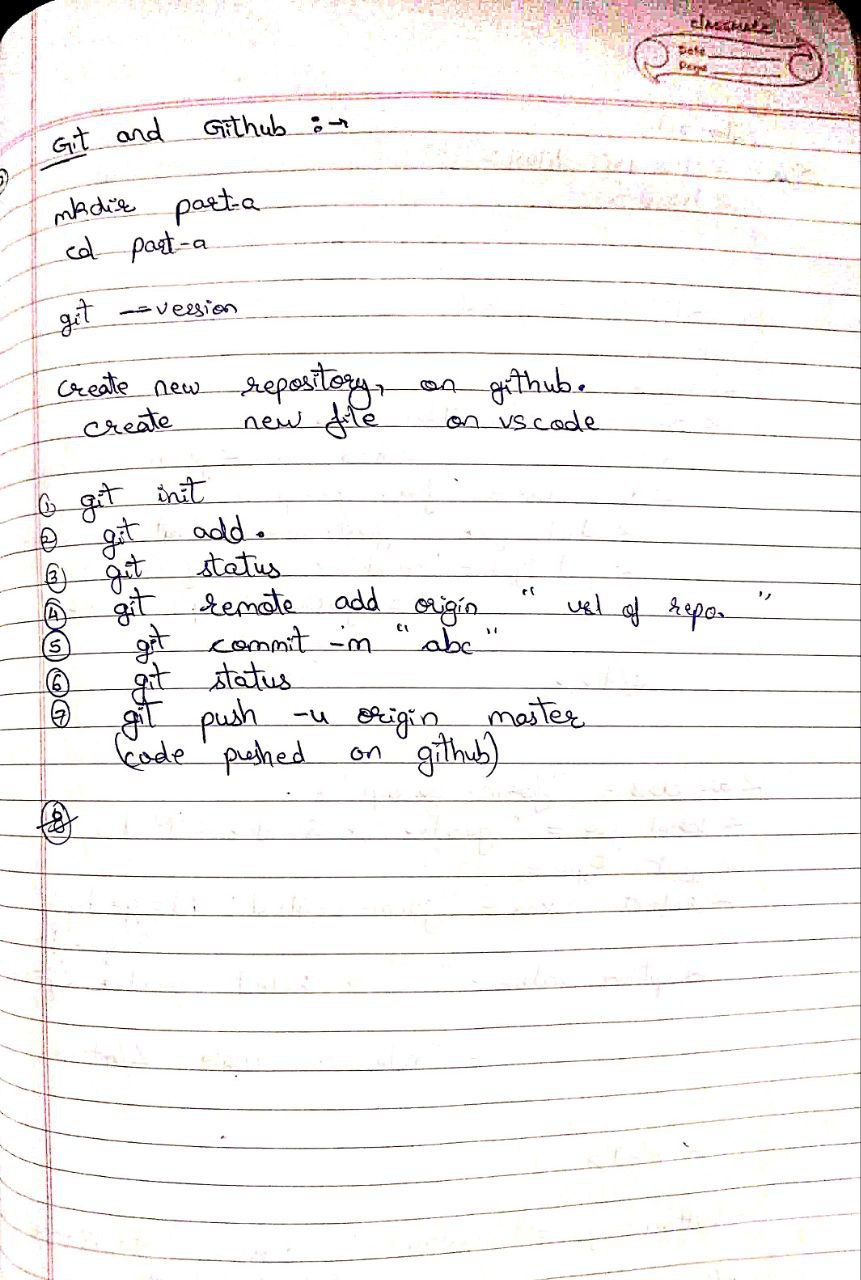 classmate
Date
Page
Git and Github :→
mkdir part-a
cd part-a
git --version
create new repository, on github.
create new file on vscode
① git init
② git add .
③ git status
④ git remote add origin " url of repo. "
⑤ git commit -m "abc"
⑥ git status
⑦ git push -u origin master
(code pushed on github)